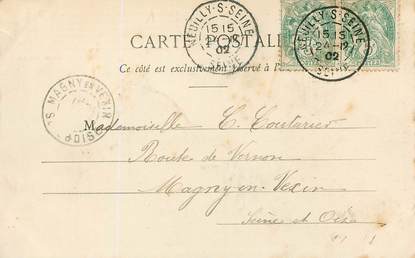 NEUILLY-S-SEINE
15 15
24-12
02
SEINE
NEUILLY-S-SEINE
15 15
24-12
02
SEINE
CARTE POSTALE
Ce côté est exclusivement réservé à l'
MAGNY EN VEXIN
S. & OISE
Mademoiselle C. Couturier
Route de Vernon
Magny en Vexin
Seine et Oise